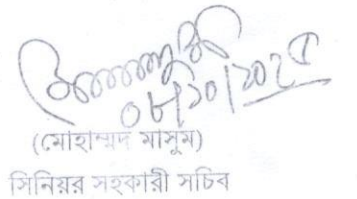 ০৮/১০/২০২৫
(মোহাম্মদ মাসুম)
সিনিয়র সহকারী সচিব